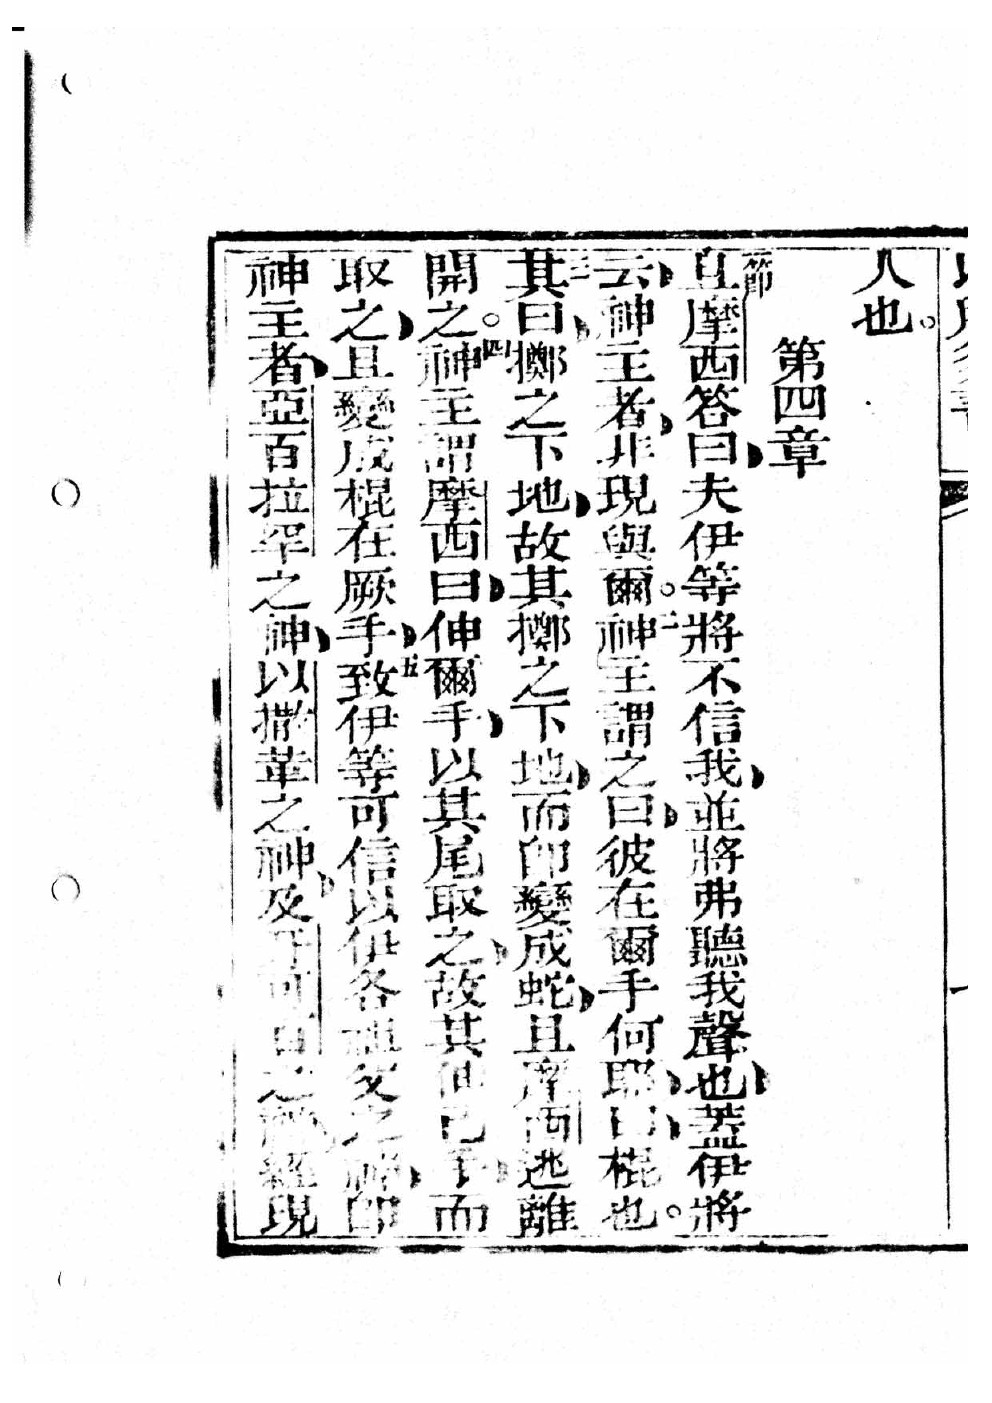 人也。
第四章
節
且摩西答曰夫伊等將不信我並將弗聽我聲也蓋伊將
云神主者非現與爾。二神主謂之曰彼在爾手何耶曰棍也。
三其曰擲之下地故其擲之下地而即變成蛇且摩西逃離
開之。四神主謂摩西曰伸爾手以其尾取之故其伸己手而
取之且變成棍在厥手五致伊等可信以伊各祖父之神即
神主者亞百拉罕之神以撒革之神及牙可百之神經現